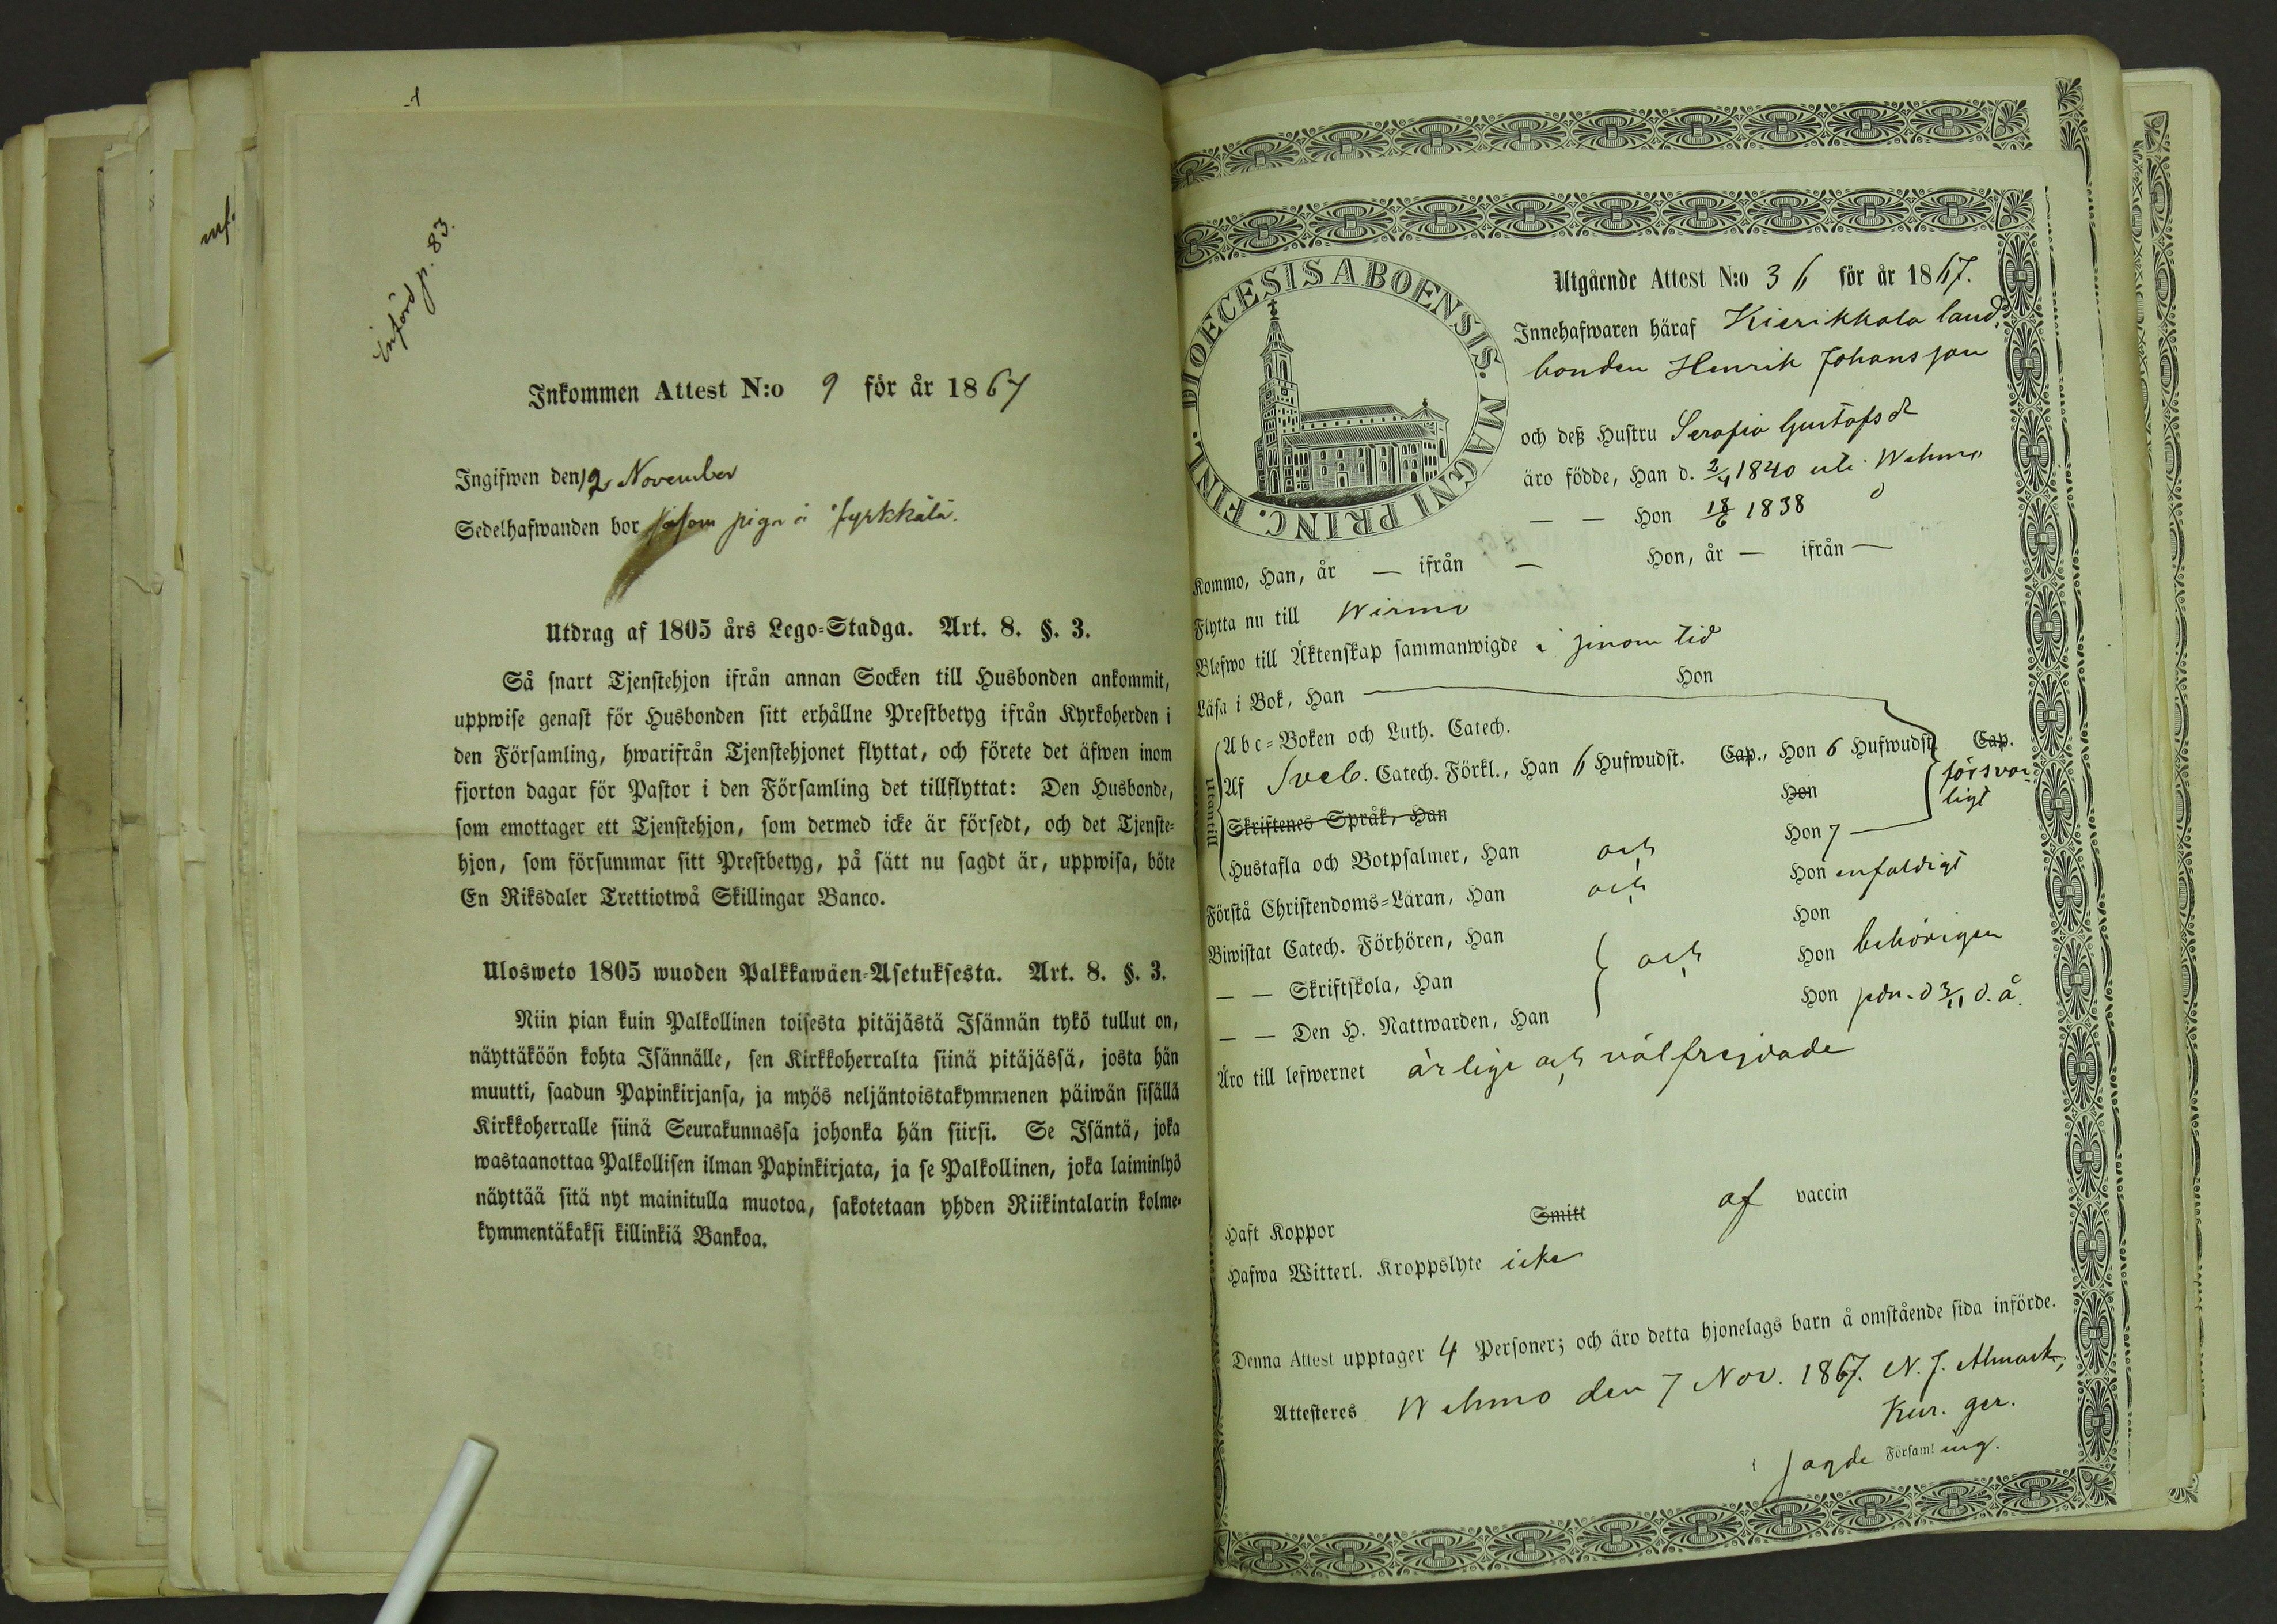 införd p. 83.
Inkommen Attest N:o 9 för år 1867
Ingifwen den 12 November
Sedelhafwanden bor såsom piga å Kyrkkälä.
Utdrag af 1805 års Lego-Stadga. Art. 8. §. 3.
Så snart Tjenstehjon ifrån annan Socken till Husbonden ankommit,
uppwise genast för Husbonden sitt erhållne Prestbetyg ifrån Kyrkoherden i
den Församling, hwarifrån Tjenstehjonet flyttat, och förete det äfwen inom
fjorton dagar för Pastor i den Församling det tillflyttat: Den Husbonde,
som emottager ett Tjenstehjon, som dermed icke är försedt, och det Tjenste-
hjon, som försummar sitt Prestbetyg, på sätt nu sagdt är, uppwisa, böte
En Riksdaler Trettiotwå Skillingar Banco.
Ulosweto 1805 wuoden Palkkawäen-Asetuksesta. Art. 8. §. 3.
Niin pian kuin Palkollinen toisesta pitäjästä Isännän tykö tullut on,
näyttäköön kohta Isännälle, sen Kirkkoherralta siinä pitäjässä, josta hän
muutti, saadun Papinkirjansa, ja myös neljäntoistakymmenen päiwän sisällä
Kirkkoherralle siinä Seurakunnassa johonka hän siirsi. Se Isäntä, joka
wastaanottaa Palkollisen ilman Papinkirjata, ja se Palkollinen, joka laiminlyö
näyttää sitä nyt mainitulla muotoa, sakotetaan yhden Riikintalarin kolme-
kymmentäkaksi killinkiä Bankoa.
DIOECESIS ABOENSIS. MAGNI PRINC. FINL.
Utgående Attest N:o 36 för år 1867.
Innehafwaren häraf Kierikkala land-
bonden Henrik Johansson
och deß Hustru Serafia Gustafsdr
äro födde, Han d. 2/4 1840 uti Wehmo
— — Hon 18/6 1838 d
Kommo, Han, år — ifrån — Hon, år — ifrån —
Flytta nu till Wirmo
Blefwo till Äktenskap sammanwigde i sinom tid
Läsa i Bok, Han Hon
Abc-Boken och Luth. Catech.
Utantill
Af Sveb. Catech. Förkl., Han 6 Hufwudst. Cap., Hon 6 Hufwudst. Cap.
försvar-
ligt
Skriftenes Språk, Han Hon
Hustafla och Botpsalmer, Han och Hon 7
Förstå Christendoms-Läran, Han och Hon enfaldigt
Biwistat Catech. Förhören, Han Hon
— — Skriftskola, Han och Hon behörigen
— — Den H. Nattwarden, Han Hon sdn. d 3/11 d. å.
Äro till lefwernet ärlige och välfrejdade
Haft Koppor Smitt af vaccin
Hafwa Witterl. Kroppslyte icke
Denna Attest upptager 4 Personer; och äro detta hjonelags barn å omstående sida införde.
Attesteres Wehmo den 7 Nov. 1867. N. J. Almark,
Kur. ger.
i sagde Församling.